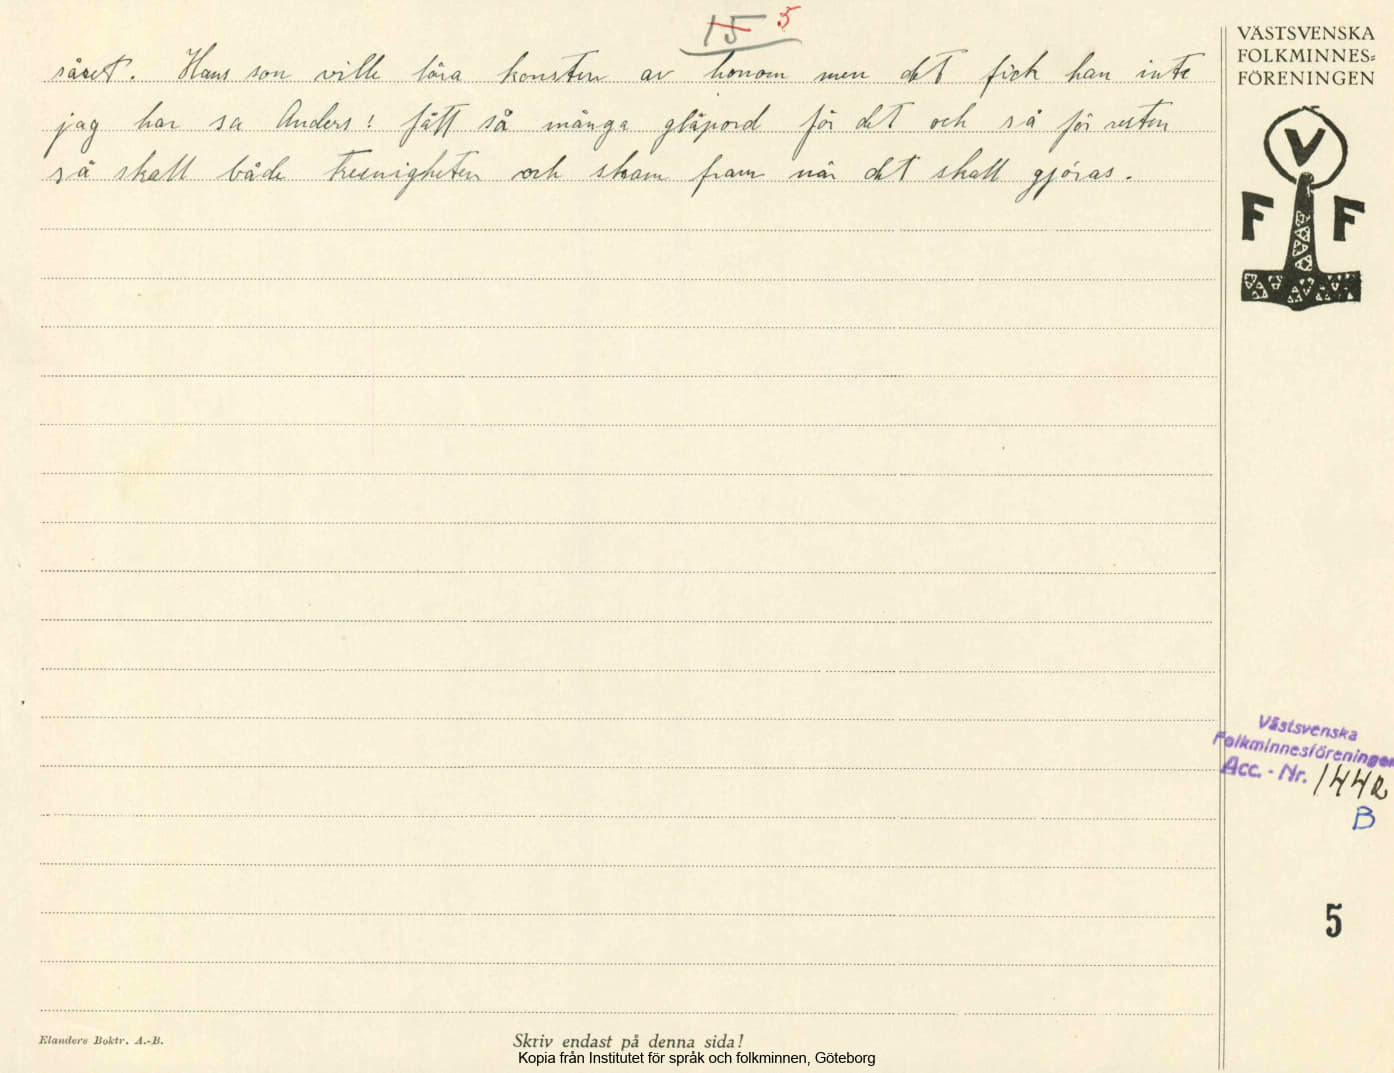 15 5
såret. Hans son ville lära konsten av honom men det fick han inte
jag har sa Anders! fått så många glåpord för det och så för resten
så skall både treenigheten och skam fram när det skall gjöras.
VÄSTSVENSKA
FOLKMINNES=
FÖRENINGEN
V
F F
Västsvenska
Folkminnesföreningen
Acc. - Nr. 1442
B
5
Elanders Boktr. A.-B.
Skriv endast på denna sida!
Kopia från Institutet för språk och folkminnen, Göteborg